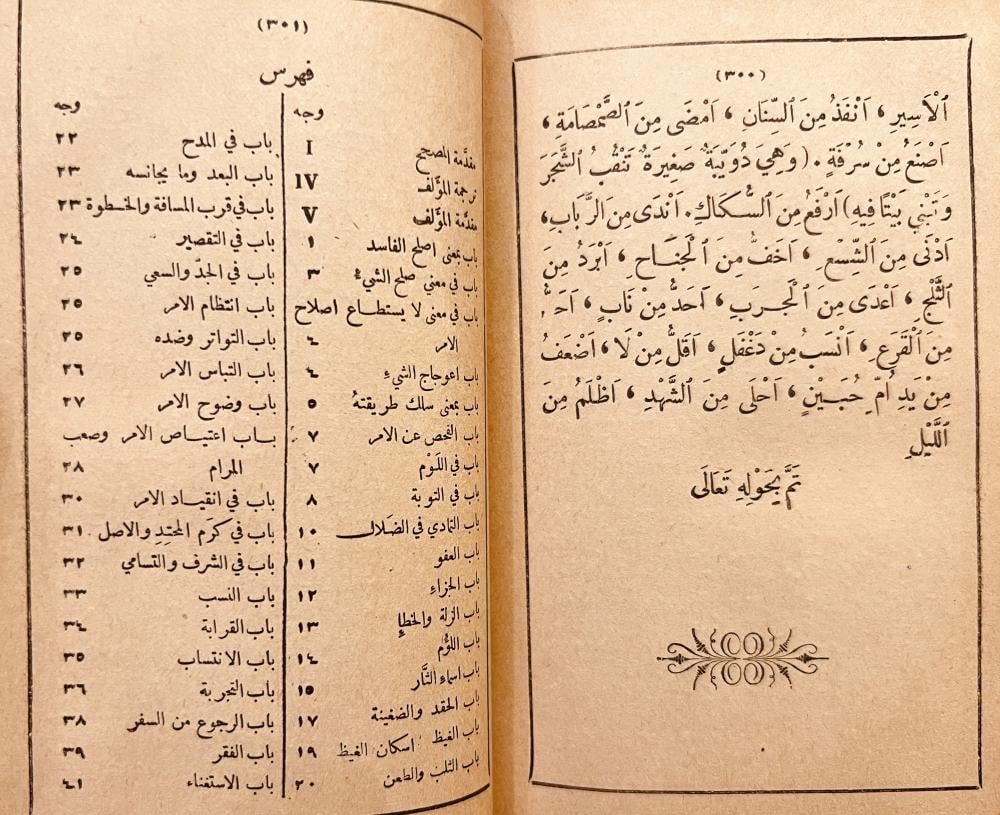 (٣٠٠)
اَلْاَسِيرِ ، اَنْفَذُ مِنَ اَلسِّنَانِ ، اَمْضَى مِنَ اَلصَّمْصَامَةِ ،
اَصْنَعُ مِنْ سُرْفَةٍ . (وَهِيَ دُوَيِّيَةٌ صَغِيرَةٌ تَنْقُبُ اَلشَّجَرَ
وَتَبْنِي بَيْتًا فِيهِ) اَرْفَعُ مِنَ اَلسُّكَاكِ . اَنْدَى مِنَ اَلرَّبَابِ ،
اَدْنَى مِنَ اَلشِّسْعِ ، اَخَفُّ مِنَ اَلْجَنَاحِ ، اَبْرَدُ مِنَ
اَلثَّلْجِ ، اَعْدَى مِنَ اَلْجَرَبِ ، اَحَدُّ مِنْ نَابٍ ، اَحَرُّ
مِنَ اَلْقَرَعِ ، اَنْسَبُ مِنْ دَغْفَلٍ ، اَقَلُّ مِنْ لَا ، اَضْعَفُ
مِنْ يَدِ اُمِّ حُبَيْنٍ ، اَحْلَى مِنَ اَلشَّهْدِ ، اَظْلَمُ مِنَ
اَللَّيْلِ
تَمَّ بِحَوْلِهِ تَعَالَى
(٣٠١)
فهرس
وجه
مقدَّمة المصحح I
ترجمة المؤَلف IV
مقدَّمة المؤَلف V
باب بمعنى اصلح الفاسد ١
باب في معنى صلح الشيءُ ٣
باب في معنى لا يستطاع اصلاح
الامر ٤
باب اعوجاج الشيءِ ٤
باب بمعنى سلك طريقتهُ ٥
باب الفحص عن الامر ٧
باب في اللَوْم ٧
باب في التوبة ٨
باب التمادي في الضَلال ١٠
باب العفو ١١
باب الجزاءِ ١٢
باب الزلة والخطإِ ١٣
باب اللؤْم ١٤
باب اسماءِ الثَّار ١٥
باب الحقد والضغينة ١٧
باب الغيظ اسكان الغيظ ١٩
باب الثلب والطعن ٢٠
وجه
باب في المدح ٢٢
باب البعد وما يجانسه ٢٣
باب في قرب المسافة والخطوة ٢٣
باب في التقصير ٢٤
باب في الجدّ والسعي ٢٥
باب انتظام الامر ٢٥
باب التواتر وضده ٢٥
باب التباس الامر ٢٦
باب وضوح الامر ٢٧
باب اعتياص الامر وصعب
المرام ٢٨
باب في انقياد الامر ٣٠
باب في كرَم المحتِدِ والاصل ٣١
باب في الشرف والتسامي ٣٢
باب النسب ٣٣
باب القرابة ٣٤
باب الانتساب ٣٥
باب التجربة ٣٦
باب الرجوع من السفر ٣٨
باب الفقر ٣٩
باب الاستغناء ٤١